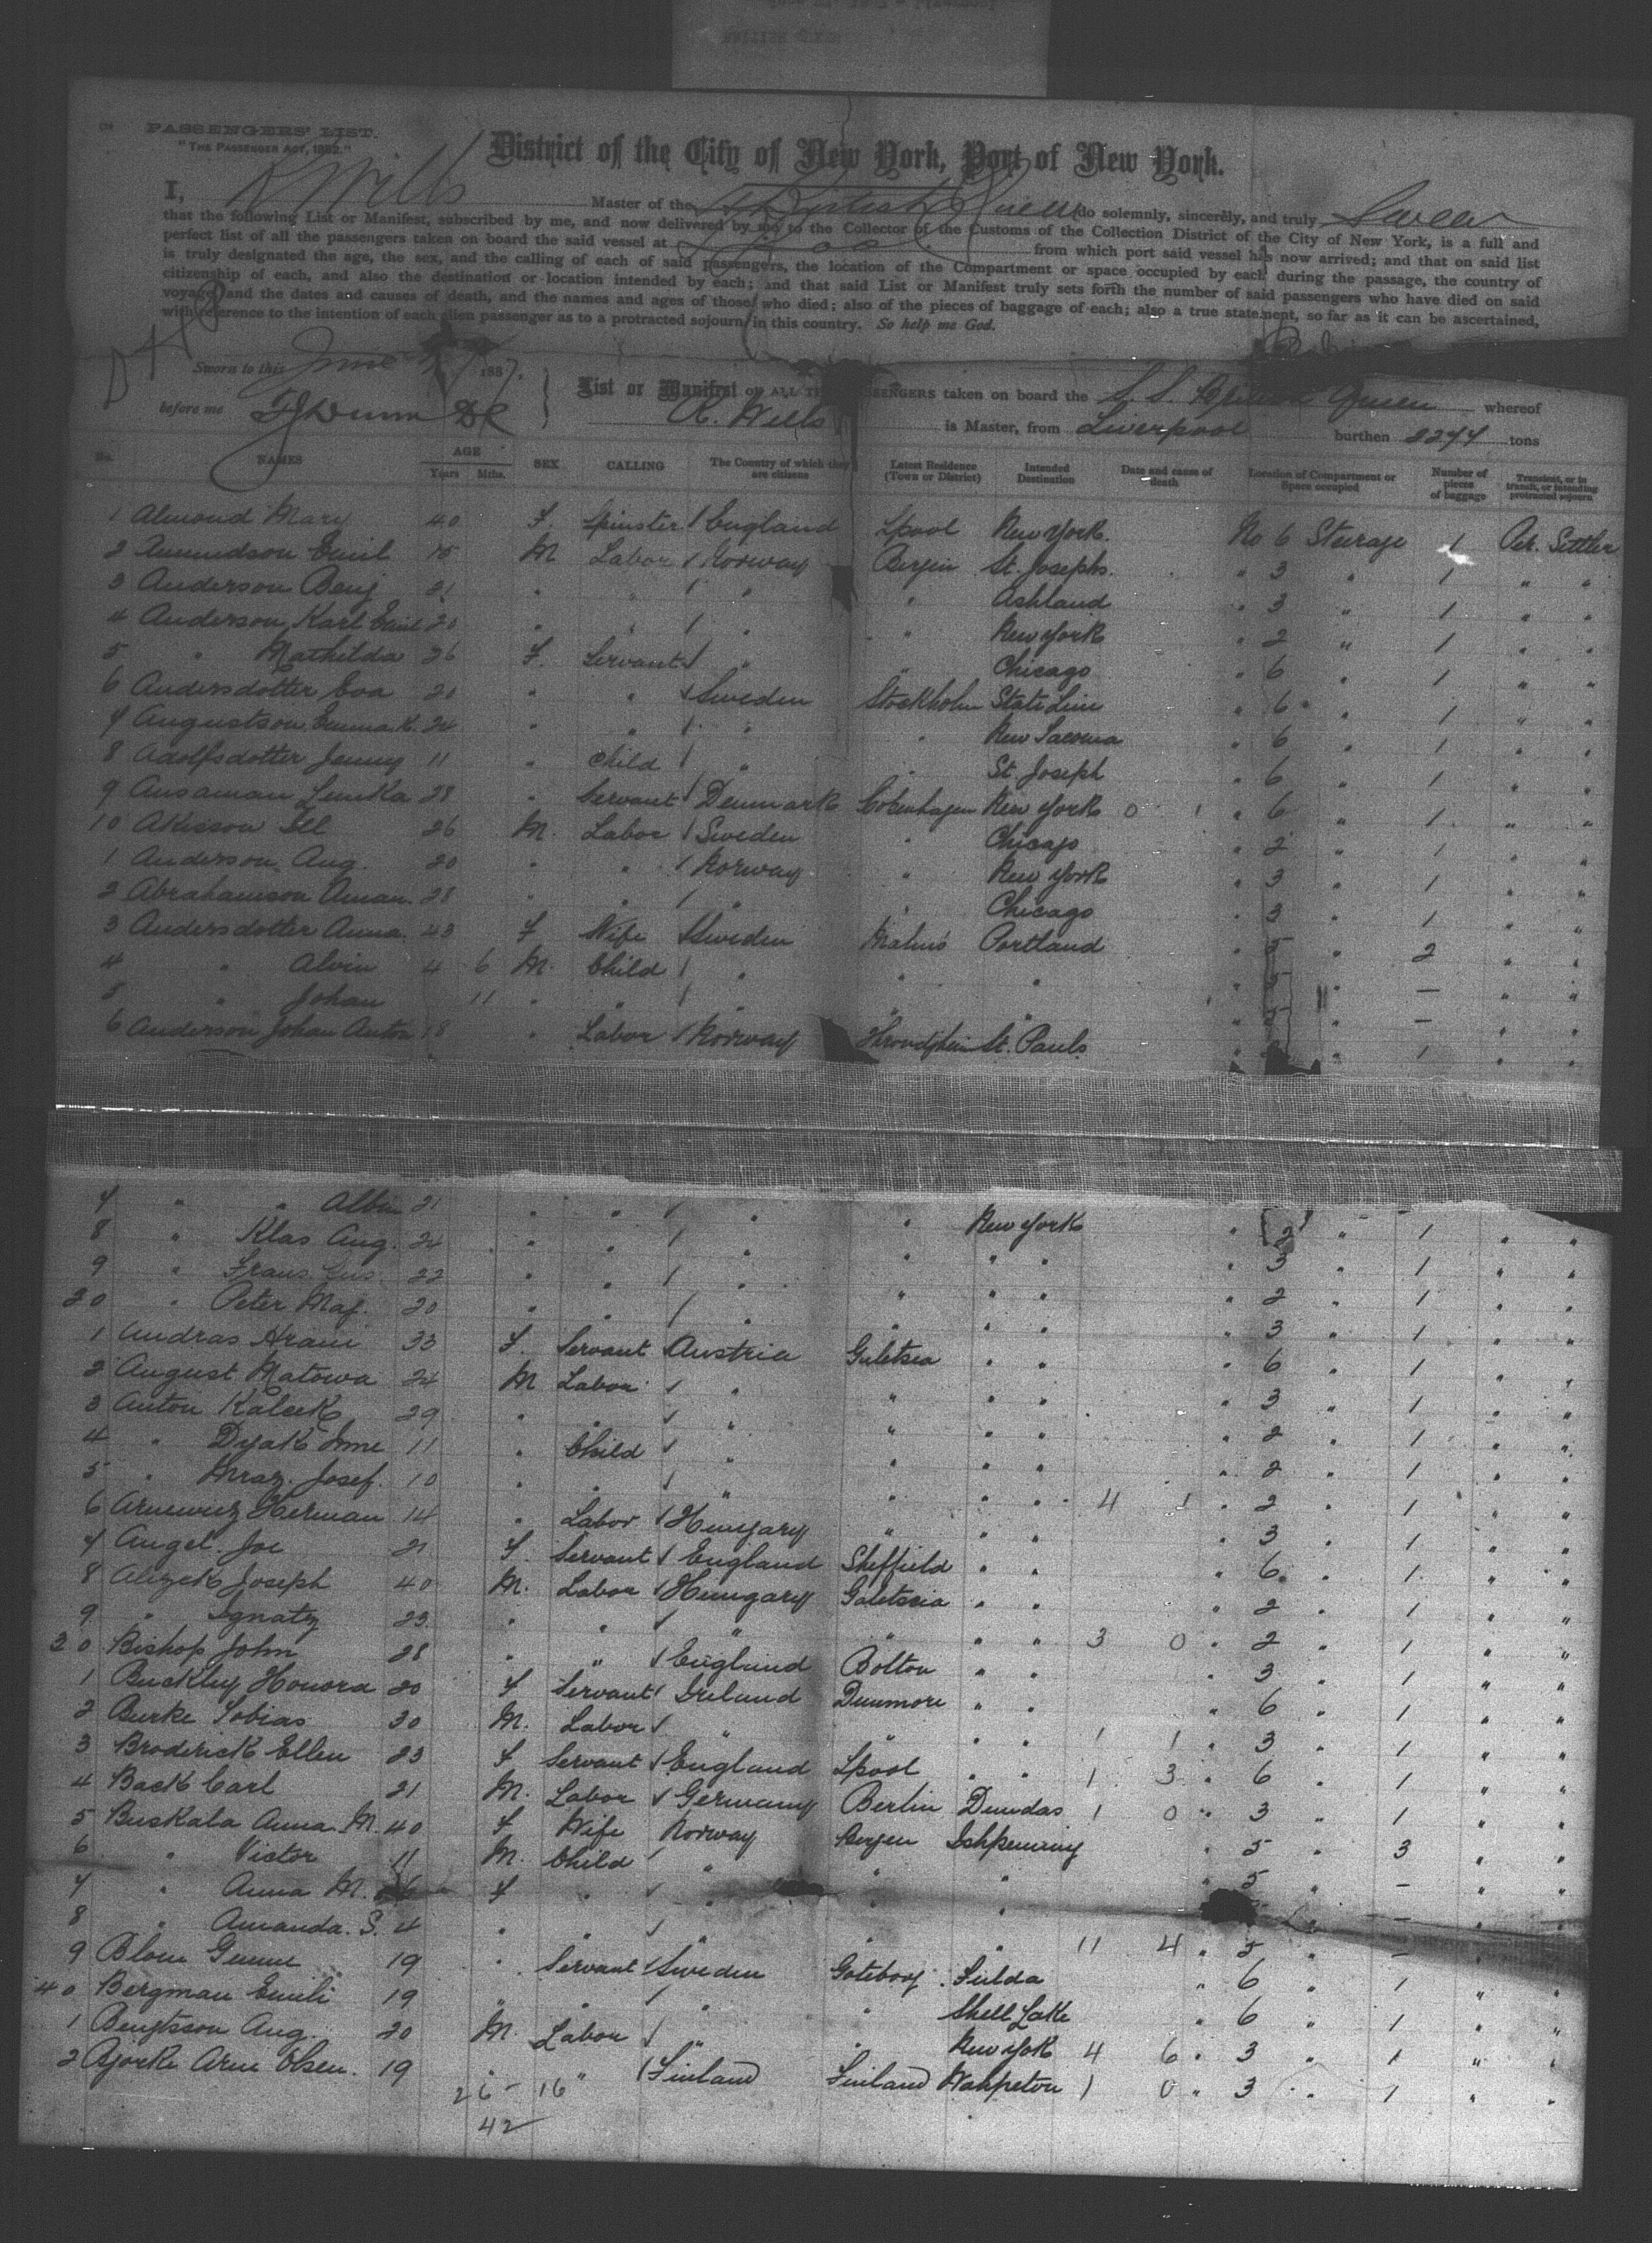 PASSENGERS' LIST.
"THE PASSENGER ACT, 1882."
District of the City of New York, Port of New York.
I, R Wills Master of the S S British Queen do solemnly, sincerely, and truly Swear
that the following List or Manifest, subscribed by me, and now delivered by me to the Collector of the Customs of the Collection District of the City of New York, is a full and
perfect list of all the passengers taken on board the said vessel at L'pool from which port said vessel has now arrived; and that on said list
is truly designated the age, the sex, and the calling of each of said passengers, the location of the Compartment or space occupied by each during the passage, the country of
citizenship of each, and also the destination or location intended by each; and that said List or Manifest truly sets forth the number of said passengers who have died on said
voyage, and the dates and causes of death, and the names and ages of those who died; also of the pieces of baggage of each; also a true statement, so far as it can be ascertained,
with reference to the intention of each alien passenger as to a protracted sojourn in this country. So help me God.
Sworn to this June 1887.
before me
List or Manifest OF ALL THE PASSENGERS taken on board the S. S. British Queen whereof
R. Wills is Master, from Liverpool burthen 2244 tons
No. NAMES AGE Years Mths. SEX CALLING The Country of which they are citizens Latest Residence (Town or District) Intended Destination Date and cause of death Location of Compartment or Space occupied Number of pieces of baggage Transient, or in transit, or intending protracted sojourn
1 Almond Mary 40 F. Spinster / England Lpool New York. No 6 Steerage 1 Per. Settler
2 Amundson Emil 15 M Labor / Norway Bergen St. Josephs. " 3 " 1 " "
3 Anderson Benj 21 " " / " " Ashland " 3 " 1 " "
4 Anderson, Karl Emil 20 " " / " " New York " 2 " 1 " "
5 " Mathilda 26 F. Servant / " " Chicago " 6 " 1 " "
6 Andersdotter Eva 20 " " / Sweden Stockholm State Line " 6 " 1 " "
7 Augustson Emma K. 24 " " / " " New Tacoma " 6 " 1 " "
8 Adolfsdotter Jenny 11 " Child / " " St. Joseph " 6 " 1 " "
9 Ansaman Lenka 28 " Servant / Denmark Cobenhagen New York 0 1 " 6 " 1 " "
10 Akisson 26 M. Labor / Sweden " Chicago " 2 " 1 " "
1 Anderson Aug. 20 " " / Norway " New York " 3 " 1 " "
2 Abrahamson Aman. 28 " " / " " Chicago " 3 " 1 " "
3 Andersdotter Anna. 43 F Wife / Sweden Malmo Portland " 5 " 2 " "
4 " Alvin 4 6 M. Child / " " " " 5 " — " "
5 " Johan 11 " " / " " " " 5 " — " "
6 Anderson Johan Anton 18 " Labor / Norway Throndjhein St. Pauls " " 1 " "
7 " " Albin 21 " " / " " New York " 2 " 1 " "
8 " Klas Aug. 24 " " / " " " " " 3 " 1 " "
9 " Frans Gus. 22 " " / " " " " " 2 " 1 " "
20 " Peter Mag. 20 " " / " " " " " 3 " 1 " "
1 Andras Hrani 33 F. Servant Austria Galetsia " " " 6 " 1 " "
2 August Matowa 24 M Labor / " " " " " 3 " 1 " "
3 Anton Kaleek 29 " " / " " " " " 2 " 1 " "
4 " Dyak Imre 11 " Child / " " " " " 2 " 1 " "
5 " Mraz. Josef. 10 " " / " " " " 4 1 " 2 " 1 " "
6 Herman 14 " Labor / Hungary " " " " 3 " 1 " "
7 Angel. Joe 21 F. Servant / England Sheffield " " " 6 " 1 " "
8 Alizek Joseph 40 M. Labor / Hungary Galetscia " " " 2 " 1 " "
9 " Ignatz 23. " " / " " " " 3 0 " 2 " 1 " "
30 Bishop John 28 " " / England Bolton " " " 3 " 1 " "
1 Buckley Honora 20 F Servant / Ireland Dunmore " " " 6 " 1 " "
2 Burke Tobias 30 M. Labor / " " " " 1 1 " 3 " 1 " "
3 Broderick Ellen 23 F Servant / England Lpool " " 1 3 " 6 " 1 " "
4 Back Carl 21 M. Labor / Germany Berlin Dundas 1 0 " 3 " 1 " "
5 Buskala Anna M. 40 F Wife Norway Bergen Ishpeming " 5 " 3 " "
6 " Victor 11 M. Child / " " " " 5 " — " "
7 " Anna M. F " / " " " " — " "
8 " Amanda. S. 4 " " / " " " 11 4 " 5 " — " "
9 Blom Gunne 19 " Servant / Sweden Goteborg Fulda " 6 " 1 " "
40 Bergman Emili 19 " " / " " Shell Lake " 6 " 1 " "
1 Bengtsson Aug. 20 M. Labor / " " New Yok 4 6 " 3 " 1 " "
2 Bjorke Arne Olsen. 19 " " / Finland Finland Wahpeton 1 0 " 3 " 1 " "
26 - 16
42